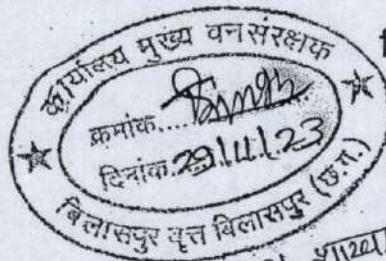 कार्यालय मुख्य वन संरक्षक
क्रमांक....
दिनांक 29/11/23
बिलासपुर वृत्त बिलासपुर (छ.ग.)